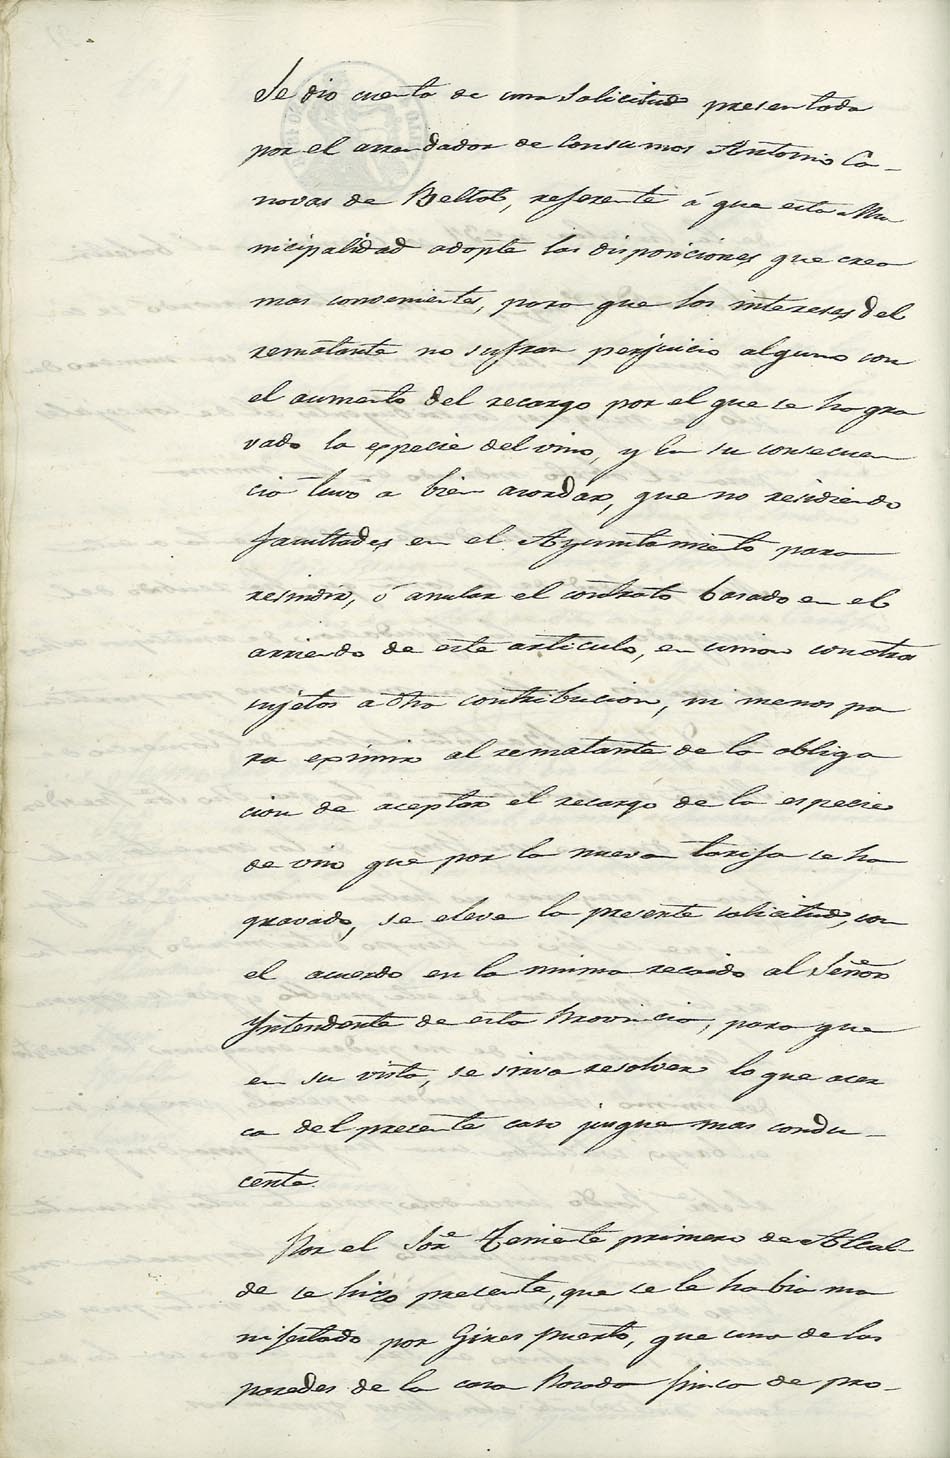 Se dio cuenta de una solicitud presentada
por el arrendador de consumos Antonio Ca-
novas de Beltot, referente á que esta Mu
nicipalidad adopte las disposiciones que crea
mas convenientes, para que los intereses del
rematante no sufran perjuicio alguno con
el aumento del recargo por el que se ha gra
vado la especie del vino, y en su consecuen
cia tuvo a bien acordar, que no residiendo
facultades en el Ayuntamiento para
resindir, ó anular el contrato basado en el
arriendo de este articulo, en union con otros
sujetos a dha contribucion, ni menos pa
ra eximir al rematante de la obliga
cion de aceptar el recargo de la especie
de vino que por la nueva tarifa se ha
gravado, se eleve la presente solicitud, con
el acuerdo en la misma recaido al Señor
Yntendente de esta Provincia, para que
en su vista, se sirva resolver lo que acer
ca del presente caso juzgue mas condu-
cente.
Por el Sor. Teniente primero de Alcal-
de se hizo presente, que se le habia ma
nifestado por Gines puerto, que una de las
paredes de la casa Posada finca de pro-